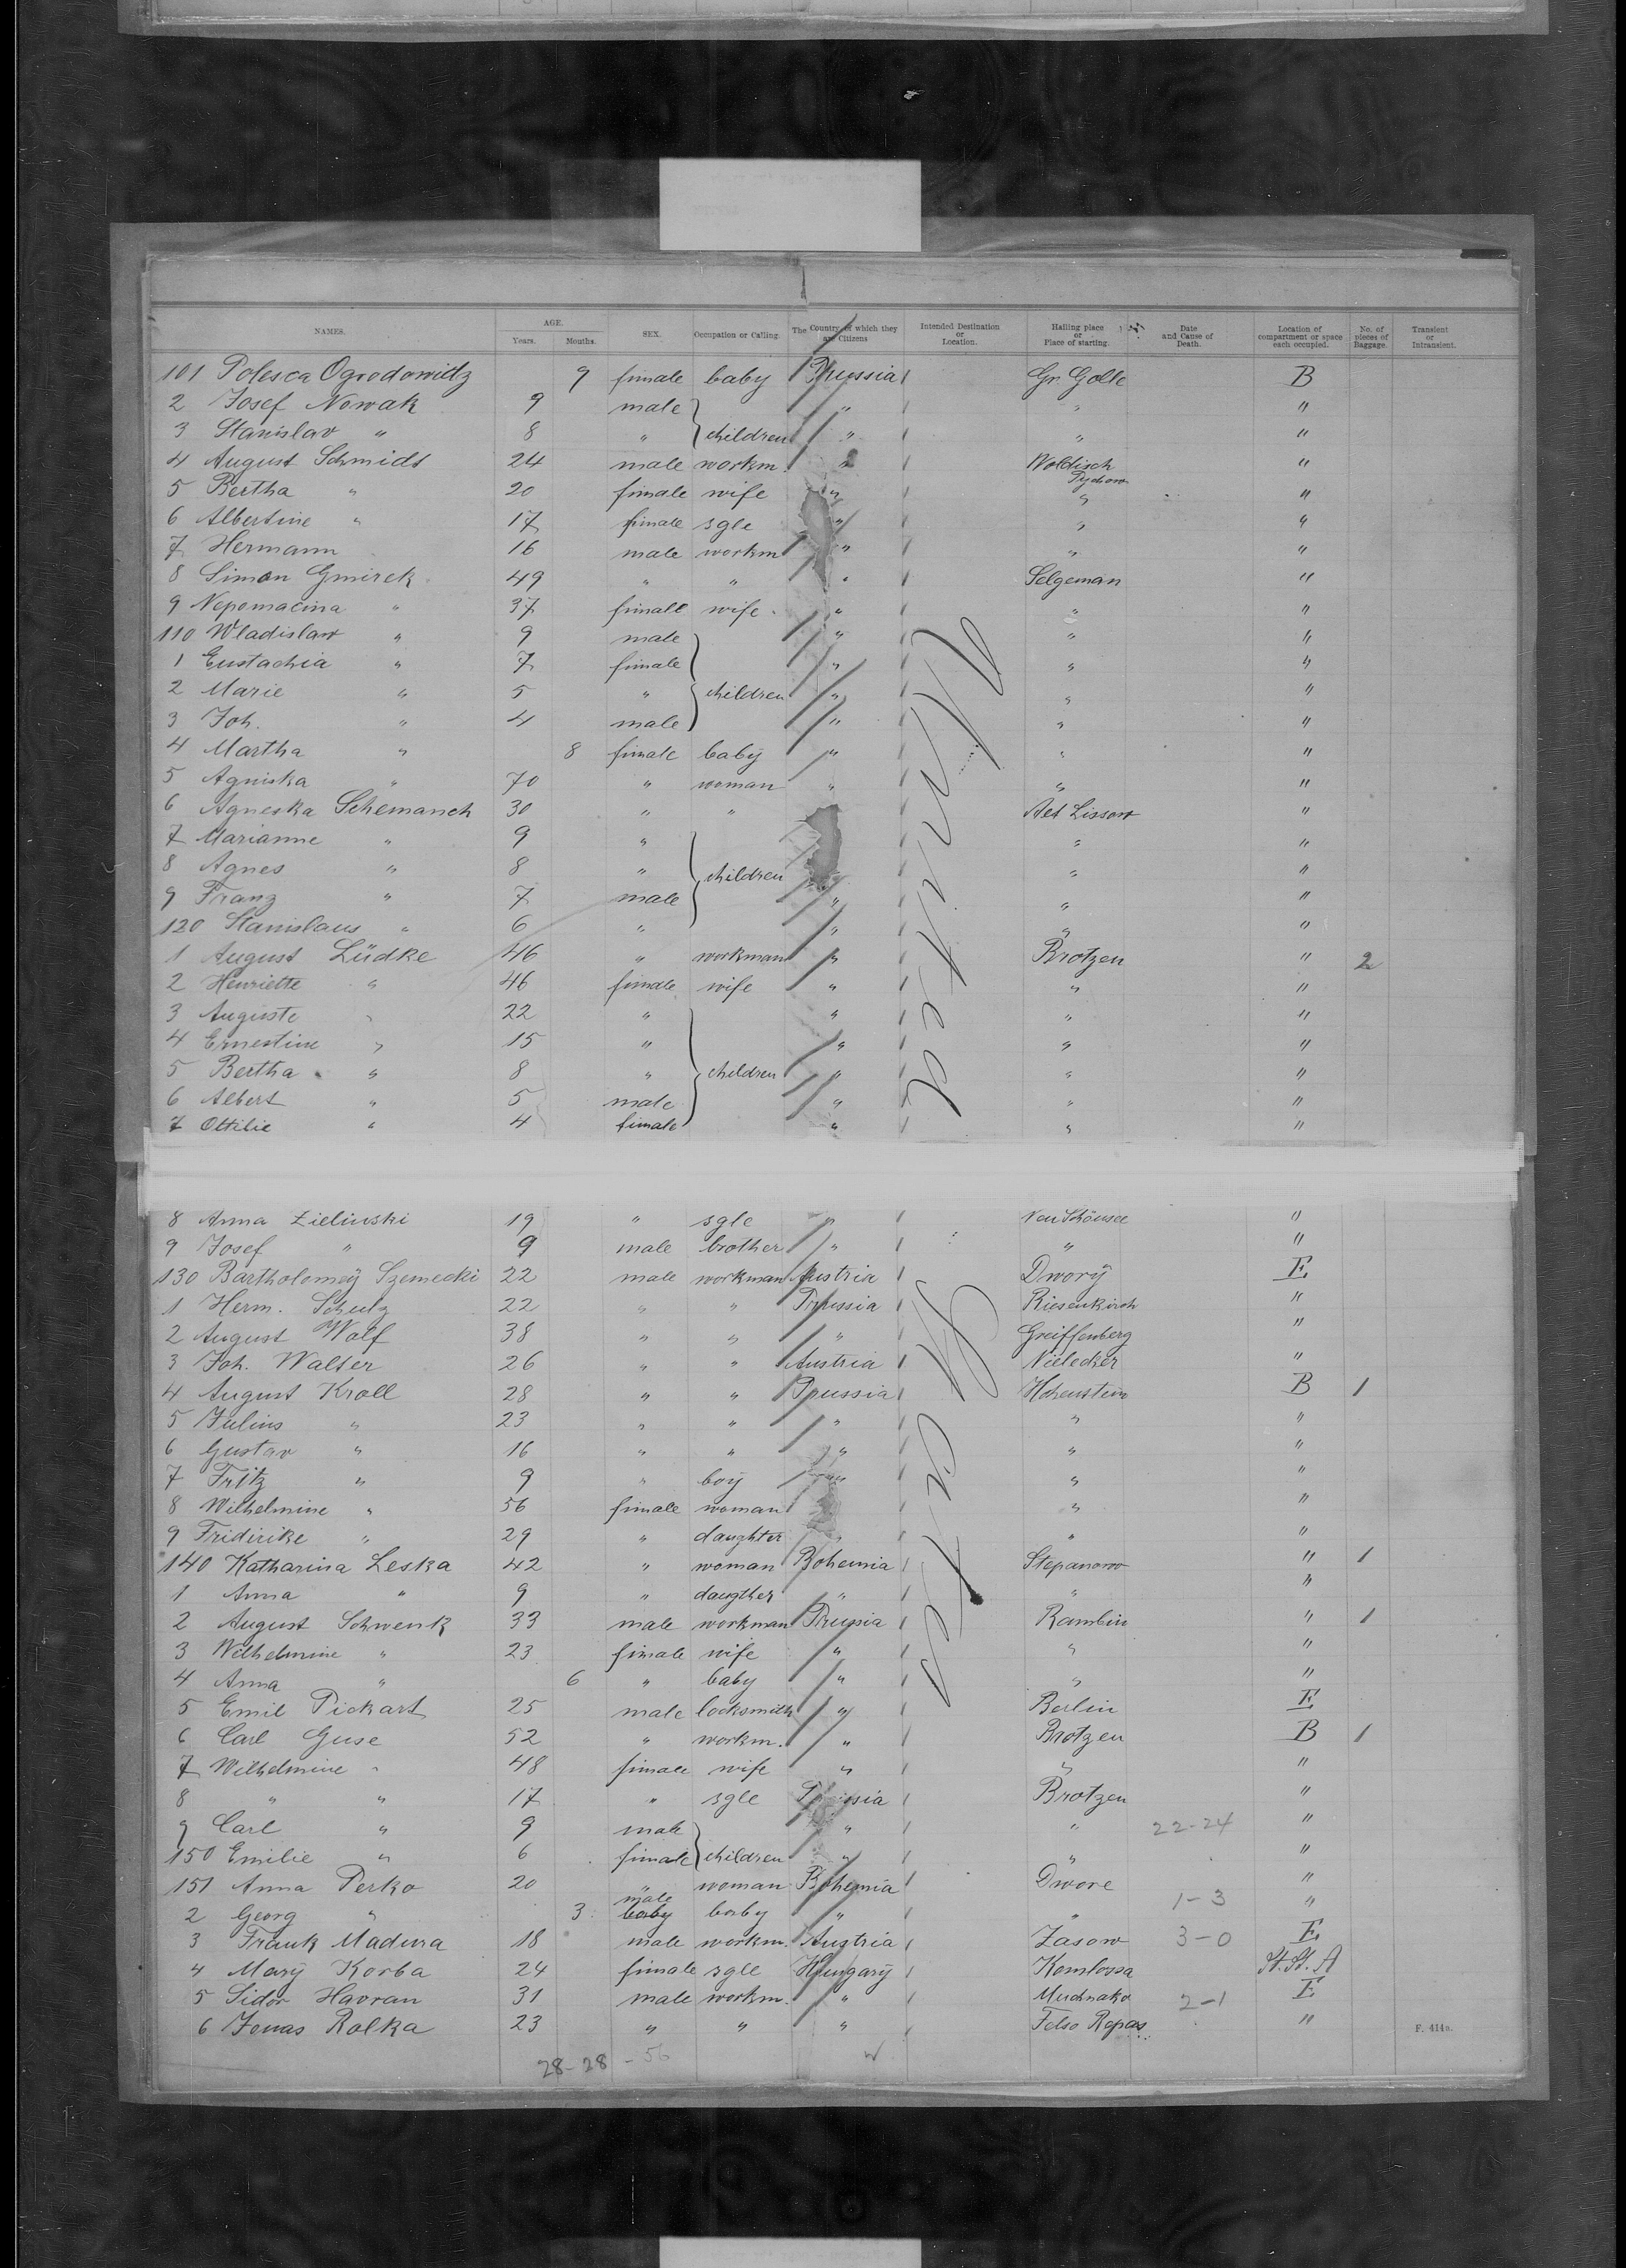 NAMES. AGE. Years. Months. SEX. Occupation or Calling. The Country of which they are Citizens Intended Destination or Location. Hailing place or Place of starting. Date and Cause of Death. Location of compartment or space each occupied. No. of pieces of Baggage. Transient or Intransient.
101 Polesca Ogrodowidz 9 female baby Prussia Gr. Golle B
2 Josef Nowak 9 male " " "
3 Stanislav " 8 " children " " "
4 August Schmidt 24 male workm. " Woldisch Tychow "
5 Bertha " 20 female wife " " "
6 Albertine " 17 female sgle " " "
7 Hermann 16 male workm " " "
8 Simon Gmirek 49 " " " Selgeman "
9 Nepomacina " 37 female wife " " "
110 Wladislaw " 9 male " " "
1 Eustachia " 7 female " " "
2 Marie " 5 " children " " "
3 Joh. " 4 male " " "
4 Martha " 8 female baby " " "
5 Agniska " 70 " woman " " "
6 Agneska Schemanch 30 " " Alt Lissow "
7 Marianne " 9 " " "
8 Agnes " 8 " children " "
9 Franz " 7 male " " "
120 Stanislaus " 6 " " " "
1 August Lüdke 46 " workman " Brotzen " 2
2 Henriette " 46 female wife " " "
3 Auguste " 22 " " " "
4 Ernestine " 15 " " " "
5 Bertha " 8 " children " " "
6 Albert " 5 male " " "
7 Ottilie " 4 female " " "
8 Anna Zielinski 19 " sgle " Neu Schönsee "
9 Josef " 9 male brother " " "
130 Bartholomeÿ Szemecki 22 male workman Austria Dworÿ E
1 Herm. Schulz 22 " " Prussia Riesenkirch "
2 August Wolf 38 " " " Greiffenberg "
3 Joh. Walter 26 " " Austria Nielecker "
4 August Kroll 28 " " Prussia Hohenstein B 1
5 Julius " 23 " " " " "
6 Gustav " 16 " " " " "
7 Fritz " 9 " boÿ " " "
8 Wilhelmine " 56 female woman " "
9 Fridirike " 29 " daughter " " "
140 Katharina Leska 42 " woman Bohemia Stepanow " 1
1 Anna " 9 " daugther " " "
2 August Schwenk 33 male workman Prussia Rambin " 1
3 Wilhelmine " 23 female wife " " "
4 Anna " 6 " baby " " "
5 Emil Pickart 25 male locksmith " Berlin E
6 Carl Guse 52 " workm. " Brotzen B 1
7 Wilhelmine " 48 female wife " " "
8 " " 17 " sgle Prussia Brotzen "
9 Carl " 9 male " " 22-24 "
150 Emilie " 6 female children " " "
151 Anna Perko 20 " woman Bohemia Dwore "
2 Georg " 3 male baby baby " " 1-3 "
3 Frank Madura 18 male workm. Austria Zasow 3-0 E
4 Marÿ Korba 24 female sgle Hungarÿ Komlossa St. St. A
5 Sidor Havran 31 male workm. " Muchnako 2-1 E
6 Jonas Rolka 23 " " " Felso Repas "
F. 414a.
28-28 - 56